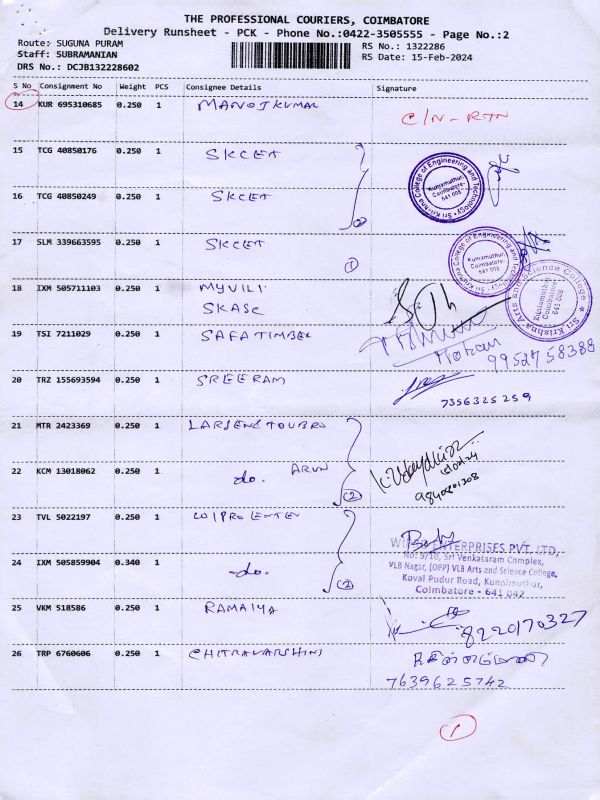 THE PROFESSIONAL COURIERS, COIMBATORE
Delivery Runsheet - PCK - Phone No.:0422-3505555 - Page No.:2
Route: SUGUNA PURAM RS No.: 1322286
Staff: SUBRAMANIAN RS Date: 15-Feb-2024
DRS No.: DCJB132228602
S No Consignment No Weight PCS Consignee Details Signature
14 KUR 695310685 0.250 1 MANOJKUMAR C/N-RTN
15 TCG 40850176 0.250 1 SKCET
16 TCG 40850249 0.250 1 SKCET (2)
Sri Krishna College of Engineering and Technology
Kuniamuthur, Coimbatore- 641 008
17 SLM 339663595 0.250 1 SKCET (1)
Sri Krishna College of Engineering and Technology
Kuniamuthur, Coimbatore- 641 008
18 IXM 505711103 0.250 1 MYVILI
SKASC
Sri Krishna Arts and Science College
Kuniamuthur Coimbatore 641 008
19 TSI 7211029 0.250 1 SAFA TIMBER
Mohan 9952758388
20 TRZ 155693594 0.250 1 SREERAM
7356325259
21 MTR 2423369 0.250 1 LARSENE TOUBRO
22 KCM 13018062 0.250 1 do. ARUN (2)
9840801308
23 TVL 5022197 0.250 1 WIPRO ENTER
ENTERPRISES PVT. LTD,
No: 9/10, Sri Venkataram Complex,
24 IXM 505859904 0.340 1 do. (2)
VLB Nagar, (OPP) VLB Arts and Science College,
Kovai Pudur Road, Kunnimuthur,
Coimbatore - 641 042
25 VKM 518586 0.250 1 RAMAIYA
8220170327
26 TRP 6760606 0.250 1 CHITRAVARSHINI
7639625742
(1)